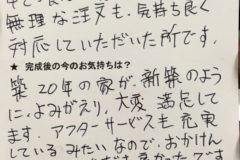 無理な注文も、気持ち良く
対応していただいた所です。
★ 完成後の今のお気持ちは？
築20年の家が、新築のよう
に、よみがえり、大変満足して
ます。アフターサービスも充実
している みたい なので、おかけん